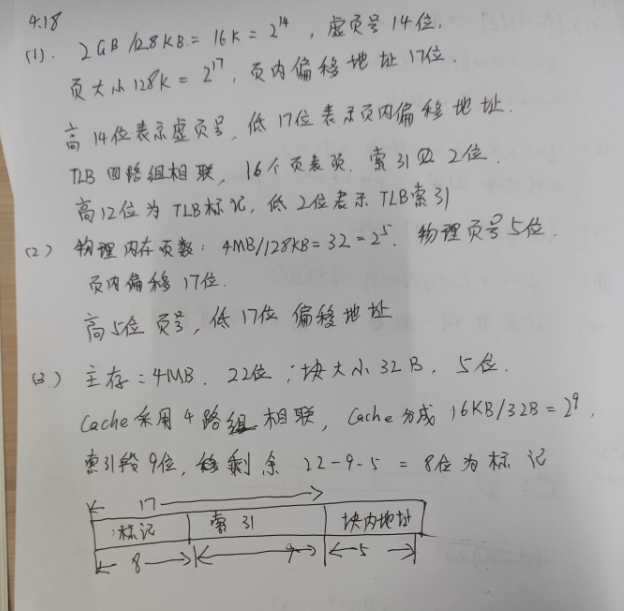 4.18
(1). 2GB/128KB = 16K = 2^14, 虚页号14位.
页大小128K = 2^17, 页内偏移地址17位.
高14位表示虚页号, 低17位表示页内偏移地址.
TLB四路组相联, 16个页表项. 索引四 2位.
高12位为TLB标记, 低2位表示TLB索引
(2) 物理内存页数: 4MB/128KB = 32 = 2^5. 物理页号5位.
页内偏移17位.
高5位页号, 低17位偏移地址
(3) 主存: 4MB. 22位; 块大小32B, 5位.
Cache采用4路组相联, Cache分成16KB/32B = 2^9,
索引段9位, 剩余 22-9-5 = 8位为标记
17
标记 索引 块内地址
8 9 5